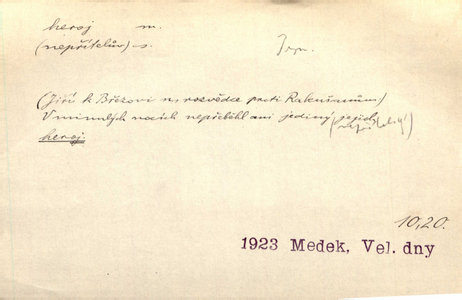 heroj m.
(nepřítelův) s.
(Jiří k Březovi na rozvědce proti Rakušanům)
V minulých nocích nepřeběhl ani jediný jejich
(nepřátelský)
heroj.
10,20.
1923 Medek, Vel. dny